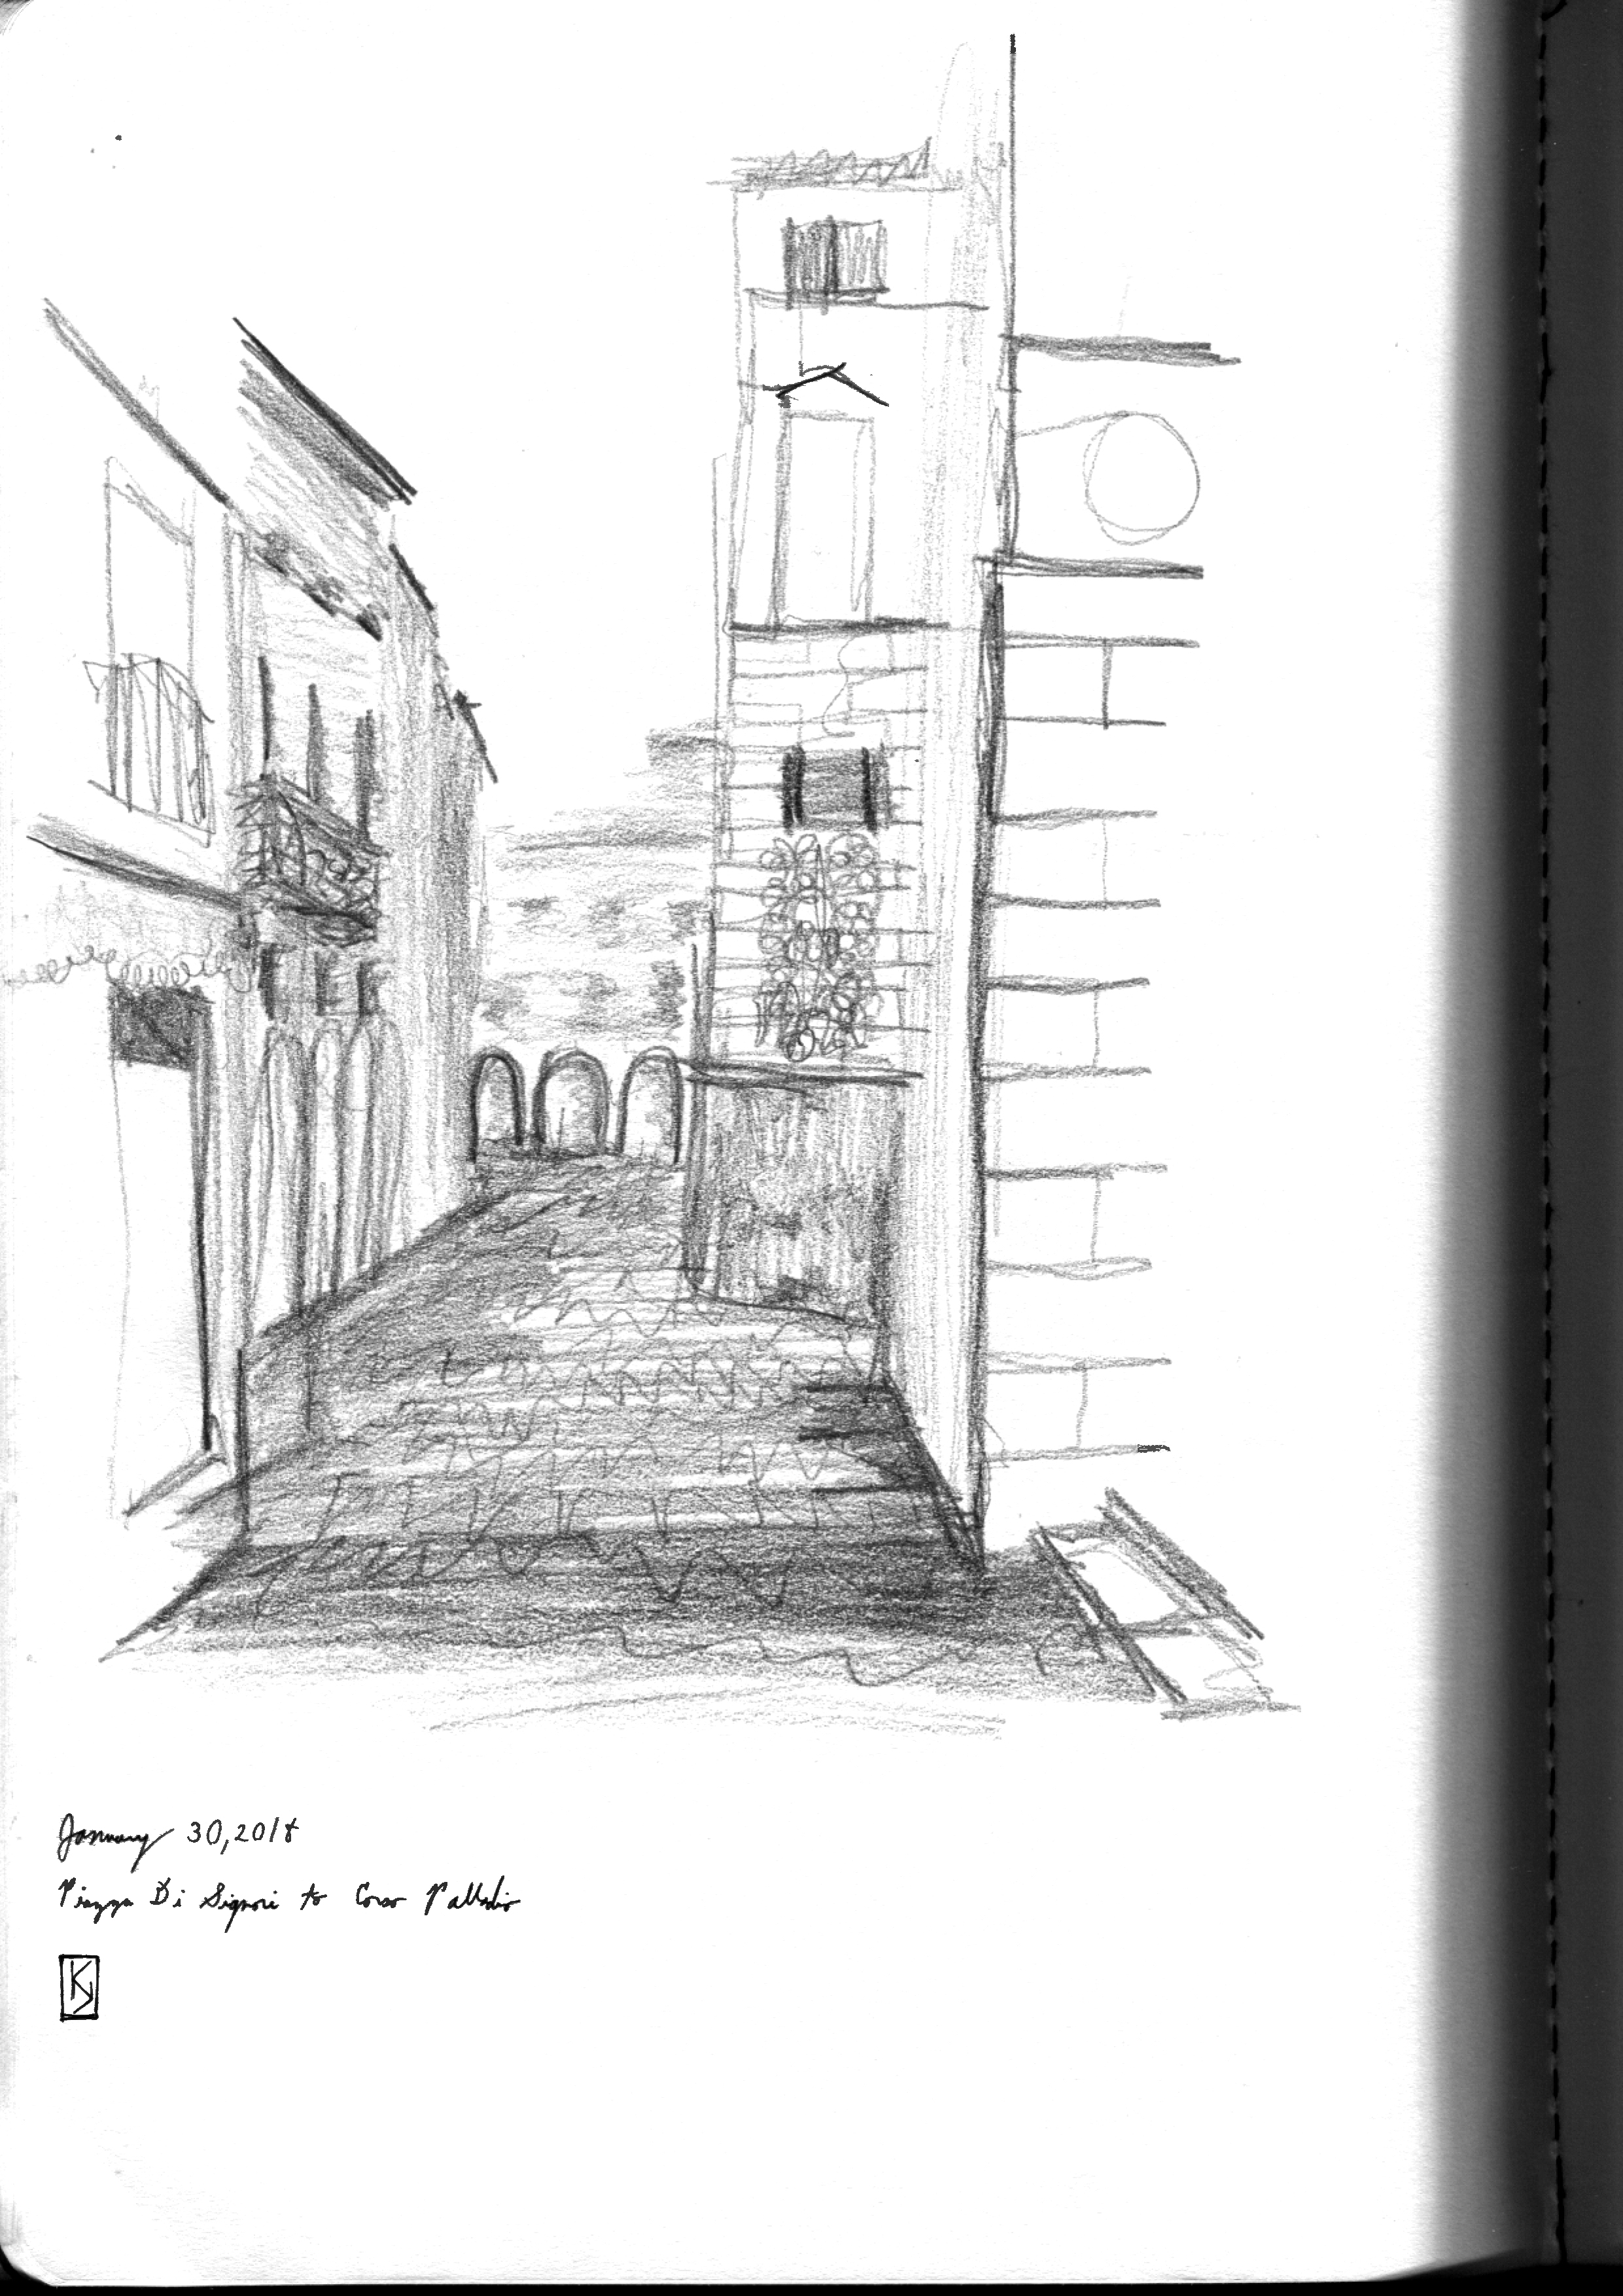 January 30, 2018
Piazza Di Signori to Corso Palladio